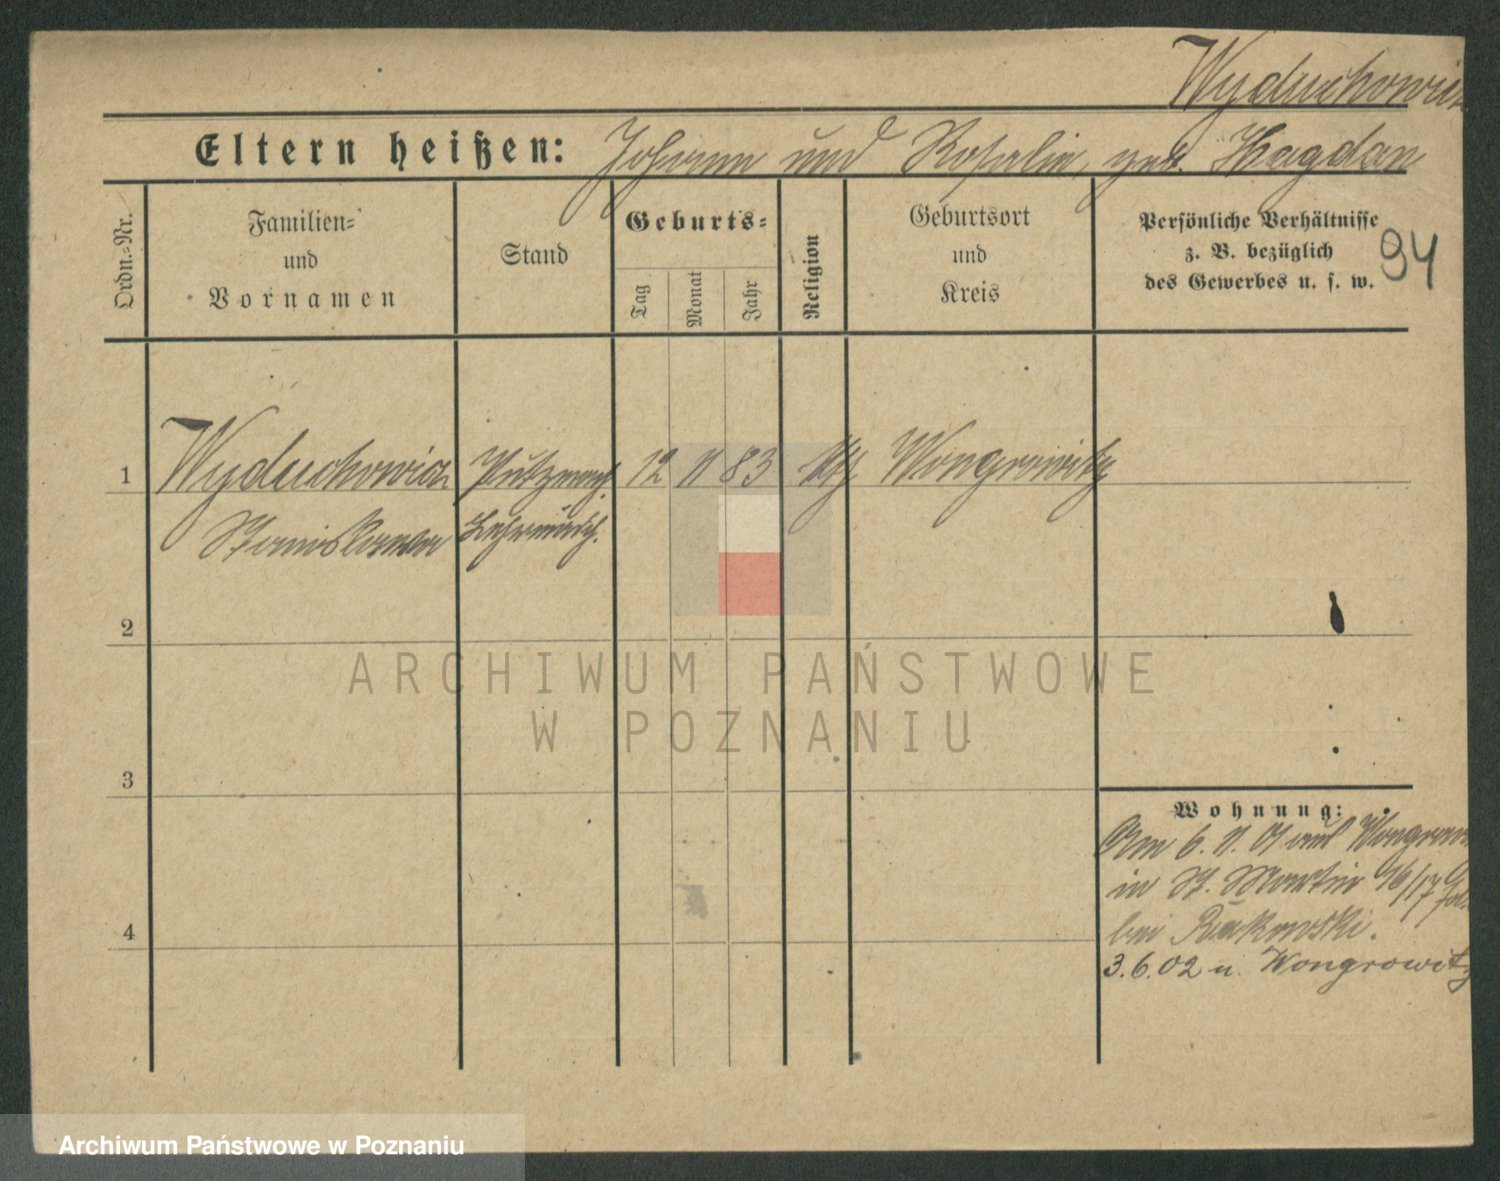 Wyduchowicz
Eltern heißen: Johann und Rosalie, geb. Hagdan
94
Ordn.=Nr.
Familien=
und
Vornamen
Stand
Geburts=
Tag
Monat
Jahr
Religion
Geburtsort
und
Kreis
Persönliche Verhältnisse
z. B. bezüglich
des Gewerbes u. s. w.
1 Wyduchowicz Putzmach. 12 11 83 kth Wongrowitz
Stanislawa Lehrmädch.
2
3
4
Wohnung:
Am 6. 11. 01 aus Wongrow
in St. Martin 16/17
bei Rutkowski.
3.6.02 n. Wongrowitz
ARCHIWUM PAŃSTWOWE
W POZNANIU
Archiwum Państwowe w Poznaniu